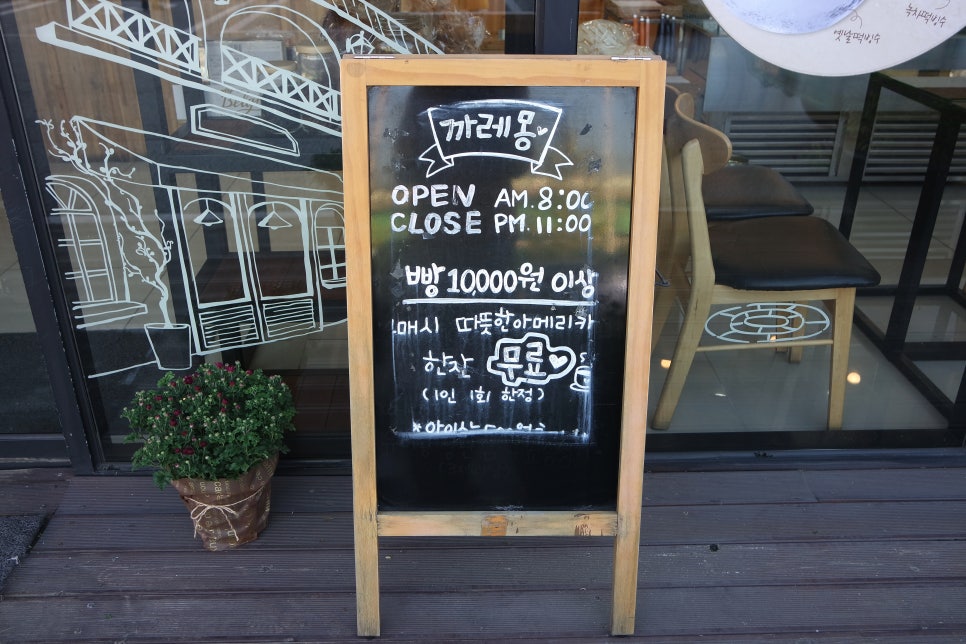 녹차떡빙수
옛날떡빙수
까레몽
OPEN AM. 8:00
CLOSE PM. 11:00
빵 10,000원 이상
매시 따뜻한아메리카
한잔 무료
(1인 1회 한정)